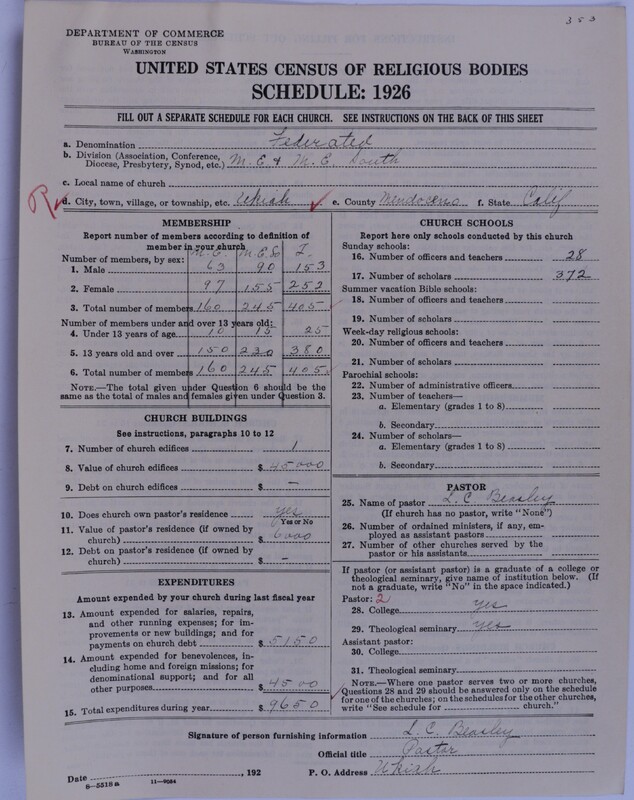 353
DEPARTMENT OF COMMERCE
BUREAU OF THE CENSUS
WASHINGTON
UNITED STATES CENSUS OF RELIGIOUS BODIES
SCHEDULE: 1926
FILL OUT A SEPARATE SCHEDULE FOR EACH CHURCH. SEE INSTRUCTIONS ON THE BACK OF THIS SHEET
a. Denomination Federated
b. Division (Association, Conference, Diocese, Presbytery, Synod, etc.) M. E & M. E. South
c. Local name of church
R d. City, town, village, or township, etc. Ukiah e. County Mendocino f. State Calif
MEMBERSHIP
Report number of members according to definition of
member in your church
M. E. M. E. So T.
Number of members, by sex:
1. Male 63 90 153
2. Female 97 155 252
3. Total number of members 160 245 405
Number of members under and over 13 years old:
4. Under 13 years of age 10 15 25
5. 13 years old and over 150 230 380
6. Total number of members 160 245 405
NOTE.—The total given under Question 6 should be
same as the total of males and females given under Question 3.
CHURCH BUILDINGS
See instructions, paragraphs 10 to 12
7. Number of church edifices 1
8. Value of church edifices $ 45000
9. Debt on church edifices $ –
10. Does church own pastor's residence yes
Yes or No
11. Value of pastor's residence (if owned by
church) $ 6000
12. Debt on pastor's residence (if owned by
church) $ –
EXPENDITURES
Amount expended by your church during last fiscal year
13. Amount expended for salaries, repairs,
and other running expenses; for im-
provements or new buildings; and for
payments on church debt $ 5150
14. Amount expended for benevolences,
including home and foreign missions; for
denominational support; and for all
other purposes $ 4500
15. Total expenditures during year $ 9650
CHURCH SCHOOLS
Report here only schools conducted by this church
Sunday schools:
16. Number of officers and teachers 28
17. Number of scholars 372
Summer vacation Bible schools:
18. Number of officers and teachers
19. Number of scholars
Week-day religious schools:
20. Number of officers and teachers
21. Number of scholars
Parochial schools:
22. Number of administrative officers
23. Number of teachers—
a. Elementary (grades 1 to 8)
b. Secondary
24. Number of scholars—
a. Elementary (grades 1 to 8)
b. Secondary
PASTOR
25. Name of pastor L. C. Beasley
(If church has no pastor, write "None")
26. Number of ordained ministers, if any, em-
ployed as assistant pastors
27. Number of other churches served by the
pastor or his assistants
If pastor (or assistant pastor) is a graduate of a college or
theological seminary, give name of institution below. (If
not a graduate, write "No" in the space indicated.)
Pastor: 2
28. College yes
29. Theological seminary yes
Assistant pastor:
30. College
31. Theological seminary
NOTE.—Where one pastor serves two or more churches,
Questions 28 and 29 should be answered only on the schedule
for one of the churches; on the schedules for the other churches,
write "See schedule for church."
Signature of person furnishing information L. C. Beasley
Official title Pastor
Date , 192 P. O. Address Ukiah
8–5518a 11—9084